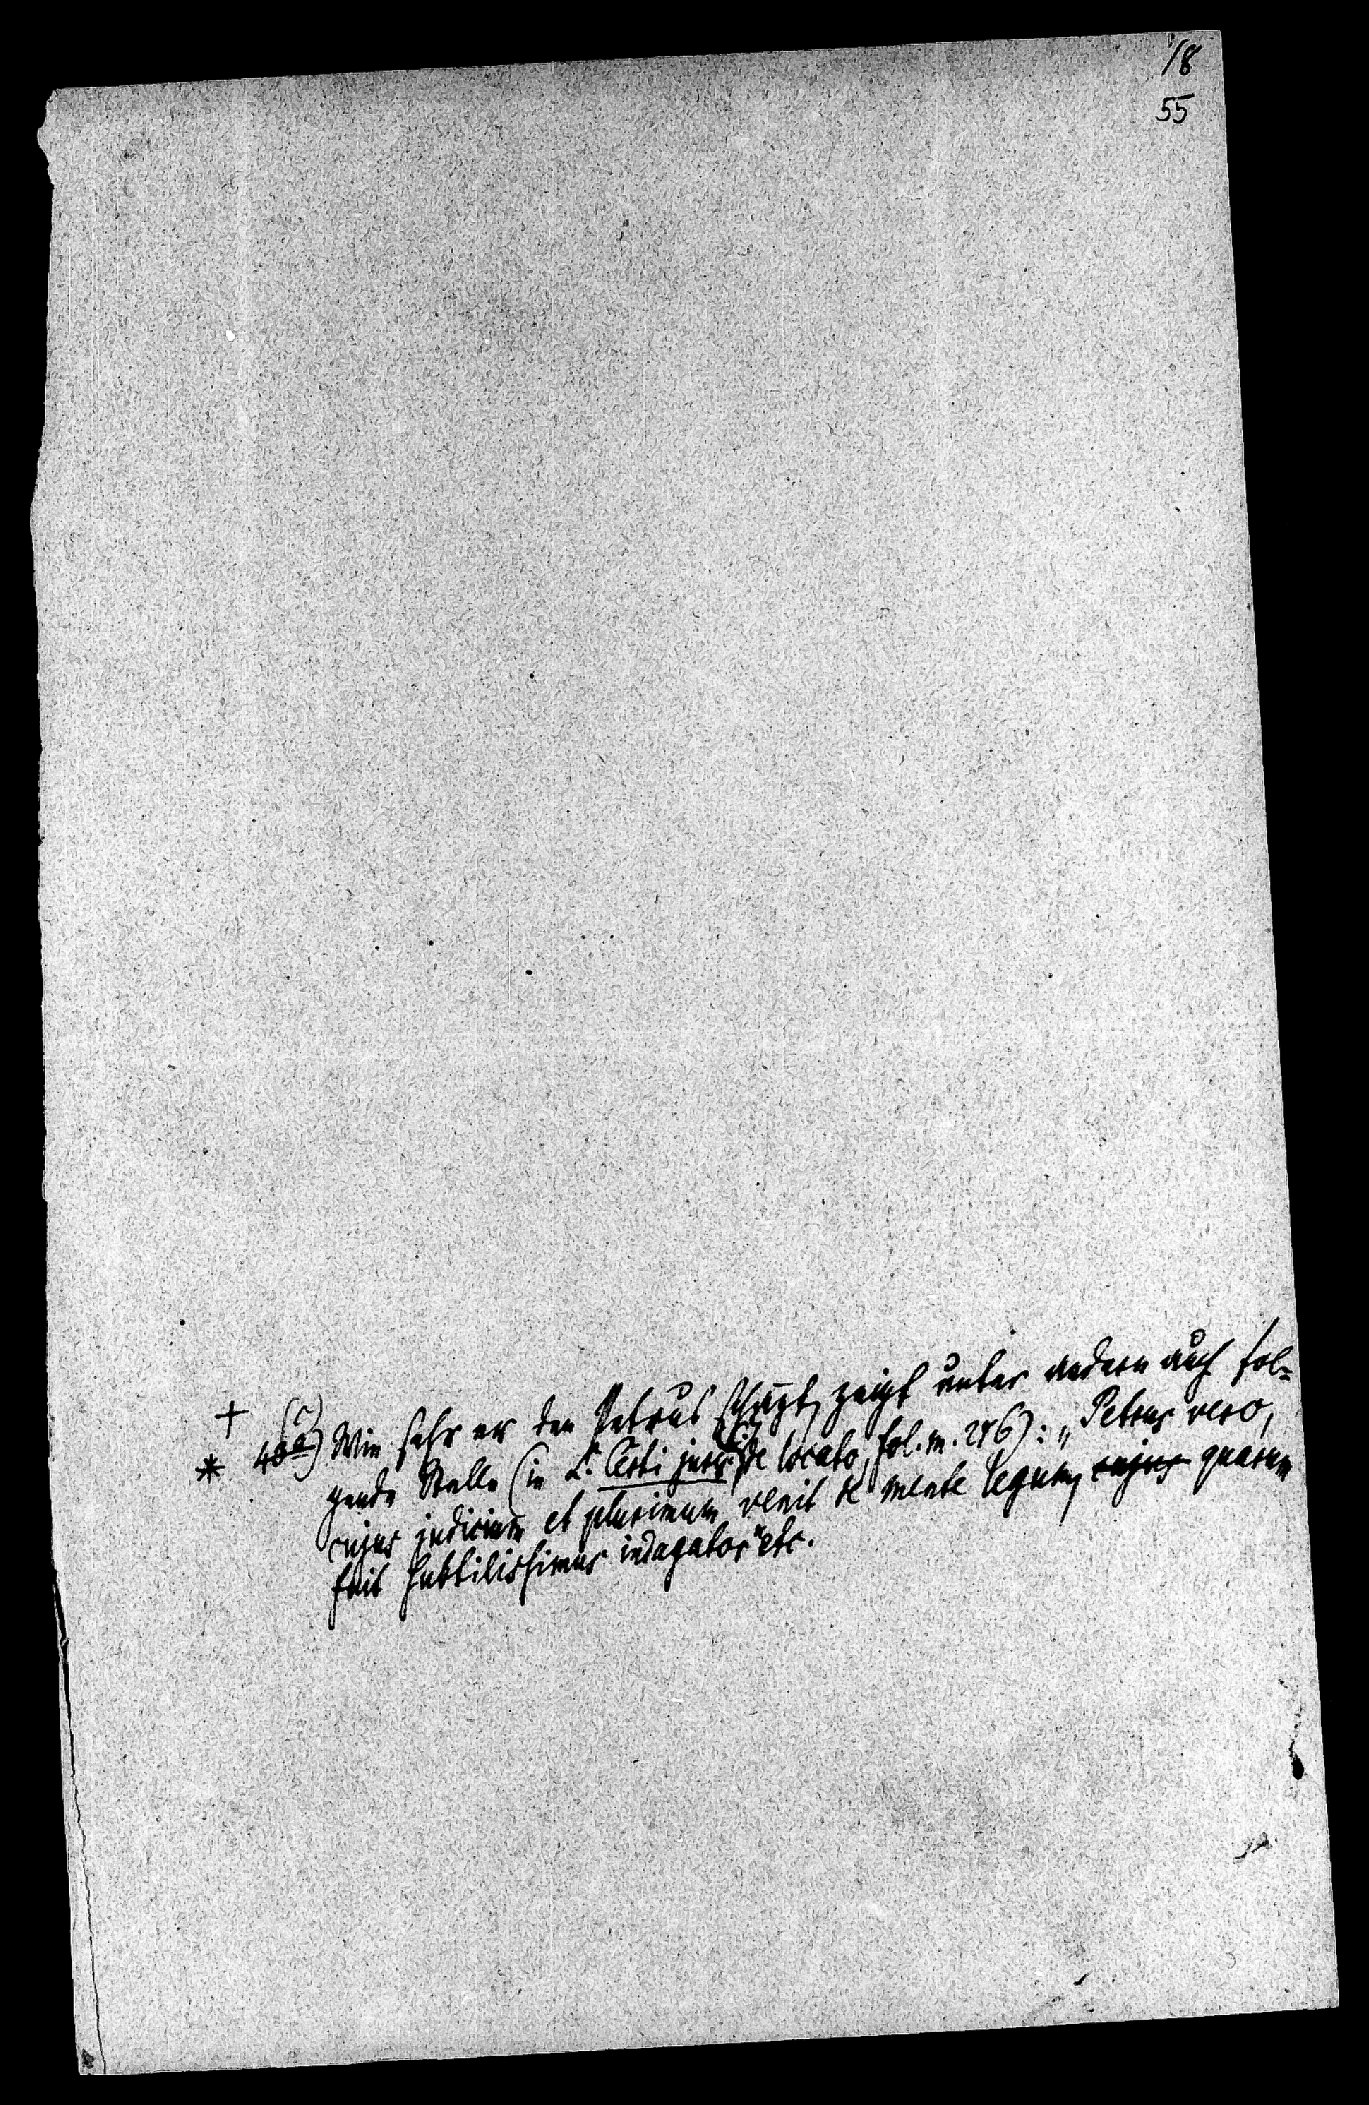 18
55
+
* 48 c) Wie sehr er den Petrus schäzt, zeigt unter andern auch fol-
gende Stelle (in L. Certi juris C. de locato, fol. m. 246): „Petrus vero,
cujus judicium et plurimum venit de mente legum, cujus quarum
fuit subtilissimus indagator“ etc.